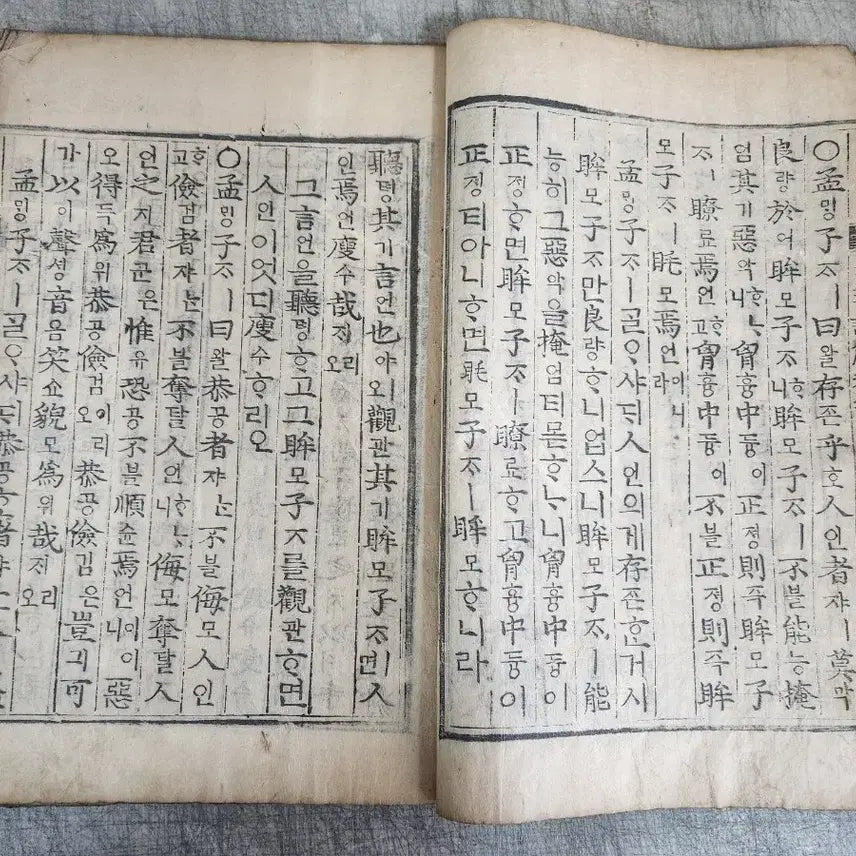 ○孟밍子ᄌᆞㅣ曰왈存존乎호人인者쟈ㅣ莫막
良량於어眸모子ᄌᆞᄒᆞ니眸모子ᄌᆞㅣ不블能능掩
엄其기惡악ᄒᆞᄂᆞ니胷흉中듕이正졍則즉眸모子
ᄌᆞㅣ瞭료焉언ᄒᆞ고胷흉中듕이不블正졍則즉眸
모子ᄌᆞㅣ眊모焉언이니라
孟밍子ᄌᆞㅣ골ᄋᆞ샤ᄃᆡ人인의게存존ᄒᆞᆫ거시
眸모子ᄌᆞ만良량ᄒᆞ니업스니眸모子ᄌᆞㅣ能
능히그惡악을掩엄티몯ᄒᆞᄂᆞ니胷흉中듕이
正졍ᄒᆞ면眸모子ᄌᆞㅣ瞭료ᄒᆞ고胷흉中듕이
正졍티아니ᄒᆞ면眊모子ᄌᆞㅣ眸모ᄒᆞ니라
聽텽其기言언也야ㅣ오觀관其기眸모子ᄌᆞㅣ면人
인焉언廋수哉ᄌᆡ리오
그言언을聽텽ᄒᆞ고그眸모子ᄌᆞ를觀관ᄒᆞ면
人인이엇디廋수ᄒᆞ리오
○孟밍子ᄌᆞㅣ曰왈恭공者쟈ᄂᆞᆫ不블侮모人인
ᄒᆞ고儉검者쟈ᄂᆞᆫ不블奪탈人인ᄒᆞᄂᆞ니侮모奪탈人
인之지君군은惟유恐공不블順슌焉언이어니惡
오得득爲위恭공儉검이리오恭공儉검은豈긔可
가以이聲셩音음笑쇼貌모爲위哉ᄌᆡ리오
孟밍子ᄌᆞㅣ골ᄋᆞ샤ᄃᆡ恭공ᄒᆞᆫ者쟈